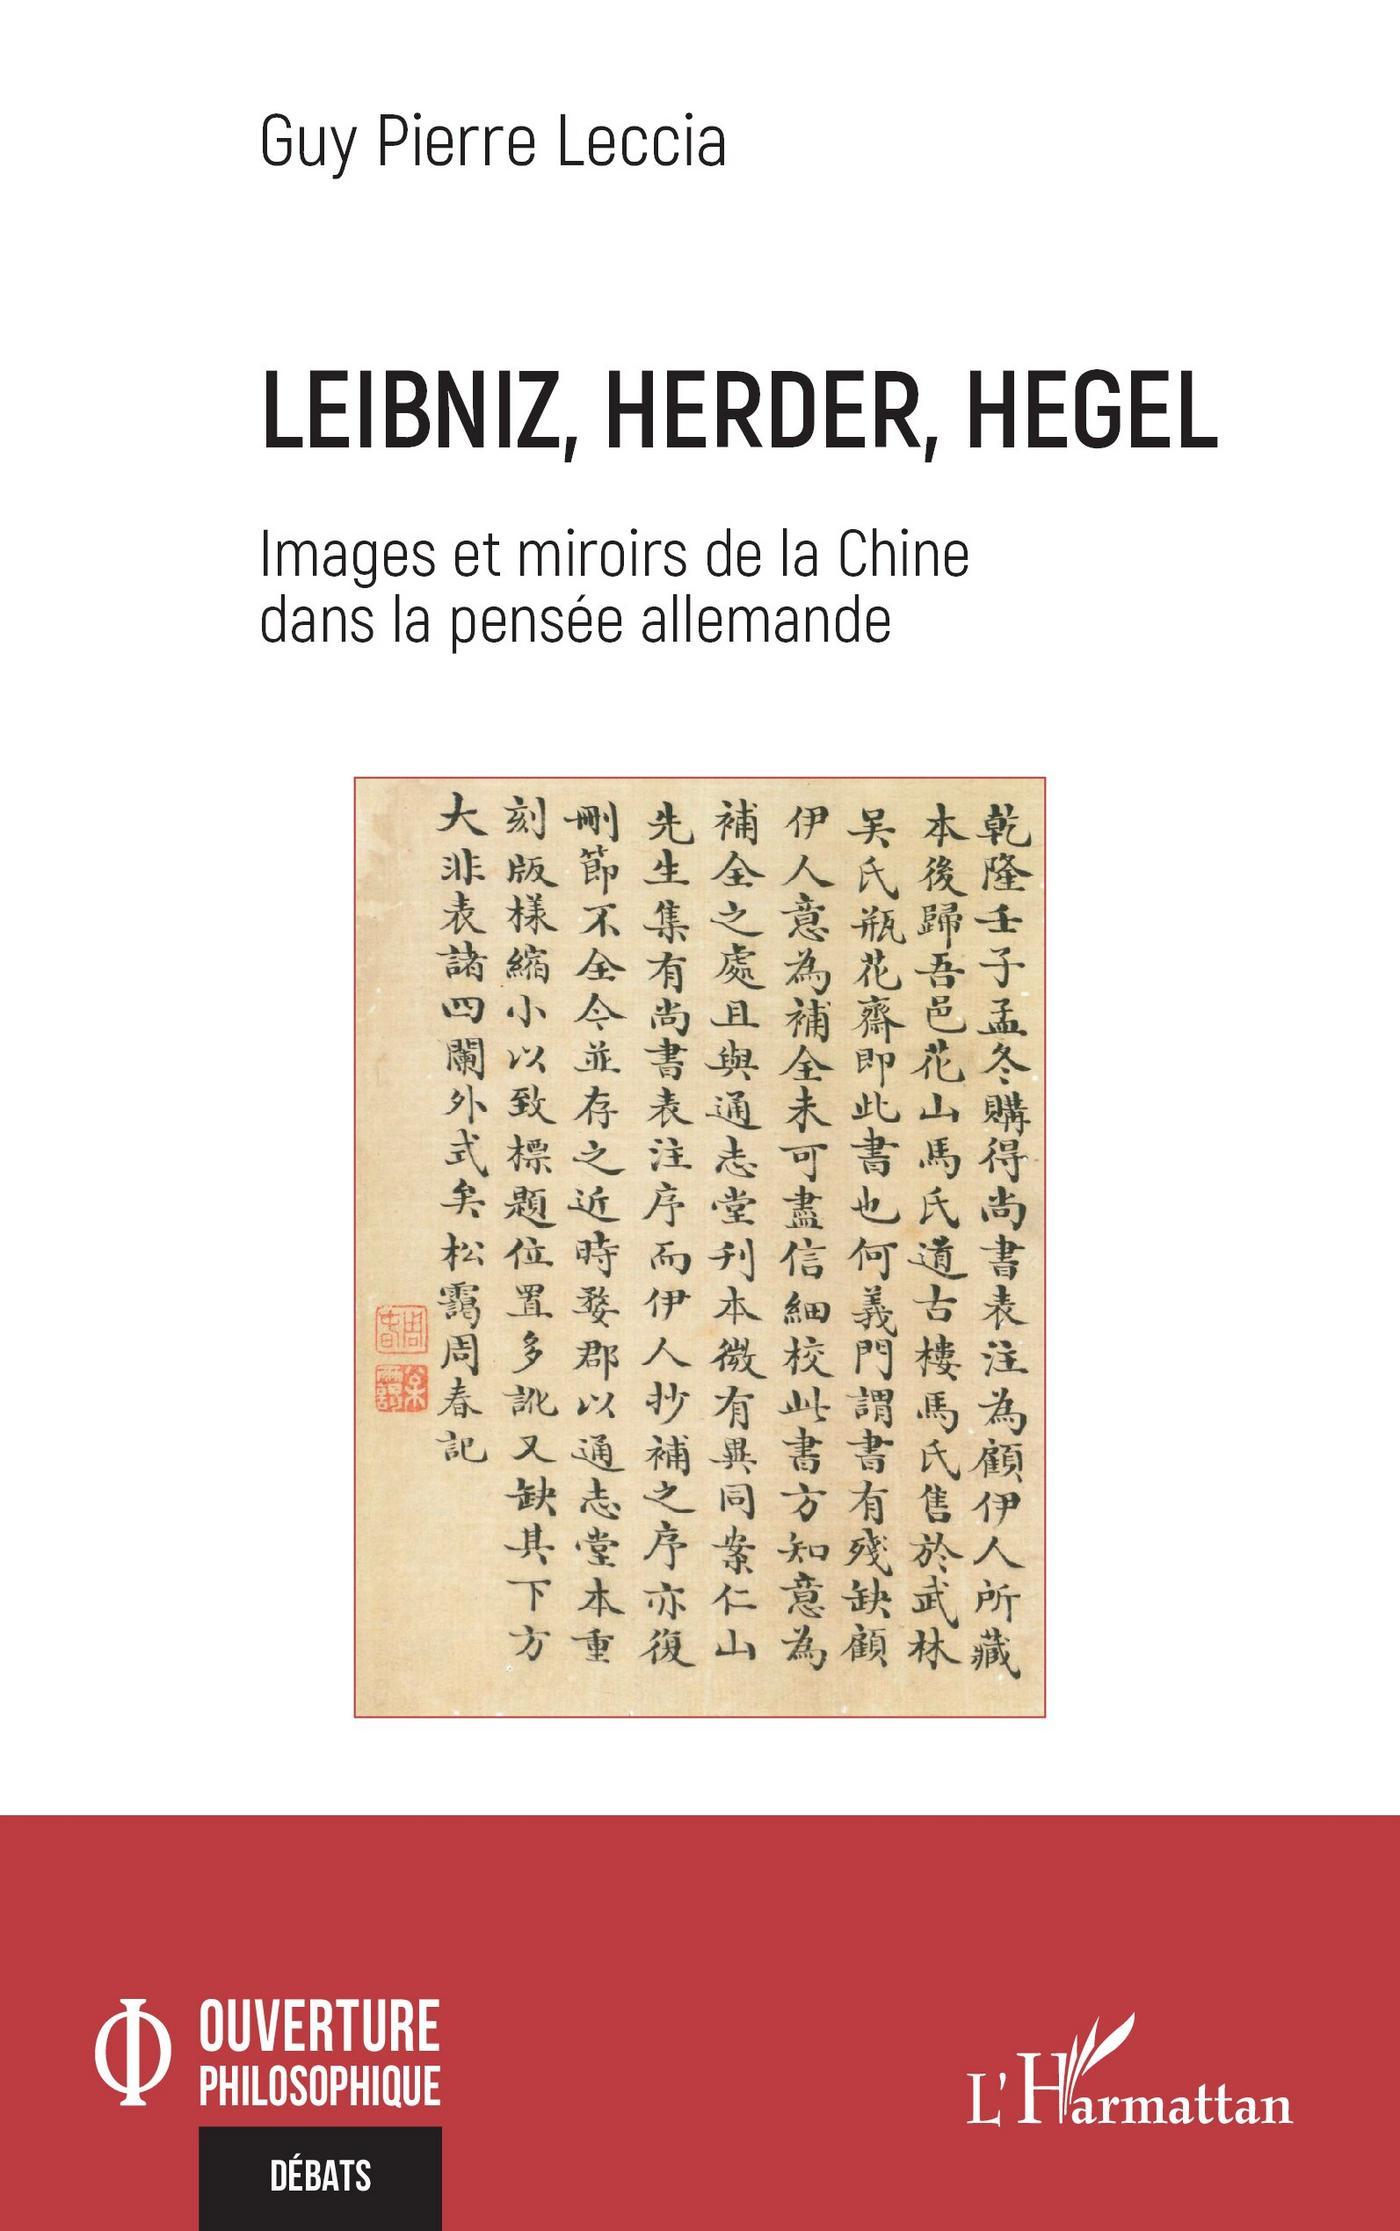 Guy Pierre Leccia
LEIBNIZ, HERDER, HEGEL
Images et miroirs de la Chine
dans la pensée allemande
乾隆壬子孟冬購得尚書表注為顧伊人所藏
本後歸吾邑花山馬氏道古樓馬氏售於武林
吴氏瓶花齋即此書也何義門謂書有殘缺顧
伊人意為補全未可盡信細校此書方知意為
補全之處且與通志堂刊本微有異同案仁山
先生集有尚書表注序而伊人抄補之序亦復
刪節不全今並存之近時婺郡以通志堂本重
刻版樣縮小以致標題位置多訛又缺其下方
大非表諸四闌外式矣松靄周春記
周春
松靄
Φ OUVERTURE
PHILOSOPHIQUE
DÉBATS
L'Harmattan